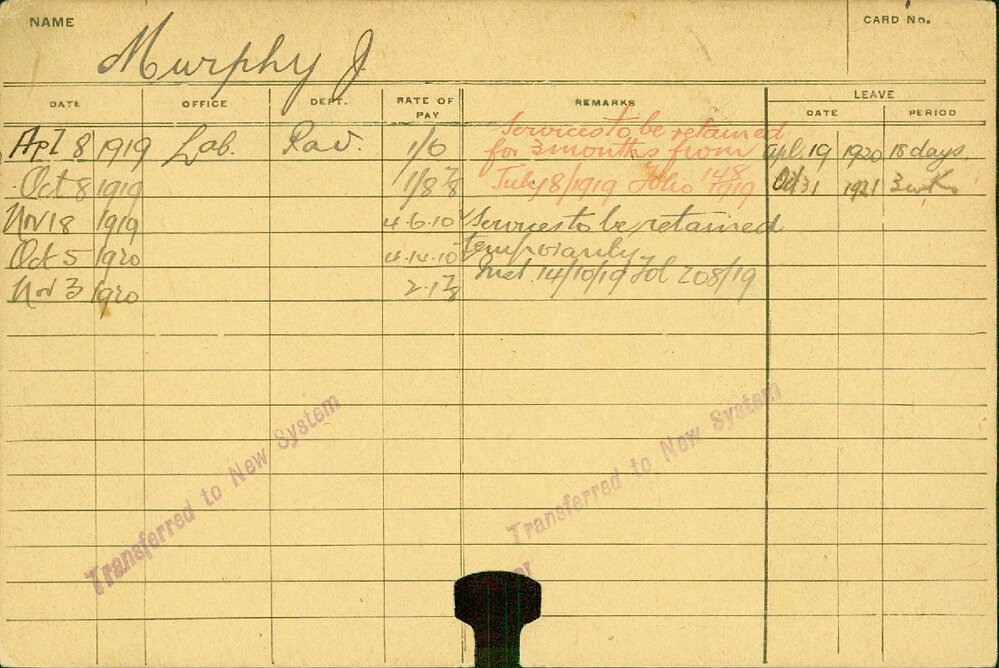 NAME
CARD No.
Murphy J
DATE OFFICE DEPT. RATE OF PAY REMARKS LEAVE
DATE PERIOD
Apl 8 1919 Lab. Pav. 1/6 Services to be retained
for 3 months from Apl. 19 1920 18 days.
Oct 8 1919 1/8 7/8 July 8/1919 Folio 148/1919 Oct 31 1921 3 wks
Nov 18 1919 4.6.10 Services to be retained
temporarily
Oct 5 1920 4.14.10
Met 14/10/19 Fol 208/19
Nov 3 1920 2.1 7/8
Transferred to New System
Transferred to New System